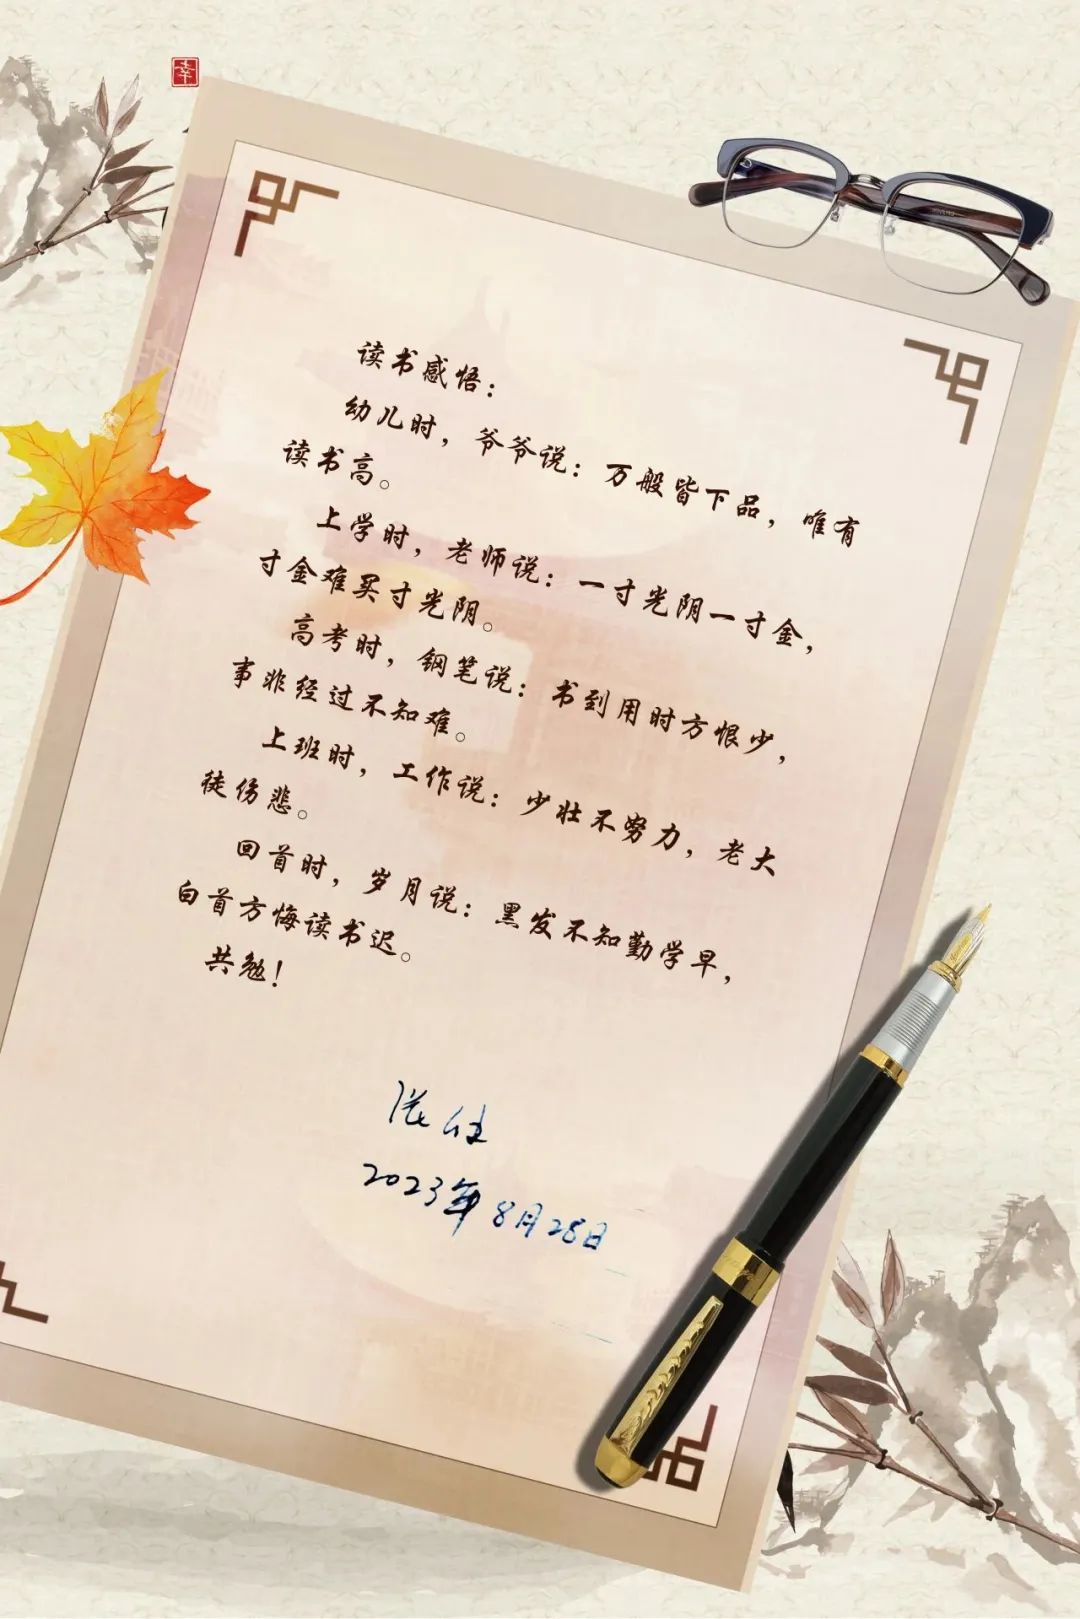 幸
读书感悟：
幼儿时，爷爷说：万般皆下品，唯有
读书高。
上学时，老师说：一寸光阴一寸金，
寸金难买寸光阴。
高考时，钢笔说：书到用时方恨少，
事非经过不知难。
上班时，工作说：少壮不努力，老大
徒伤悲。
回首时，岁月说：黑发不知勤学早，
白首方悔读书迟。
共勉！
2023年8月28日